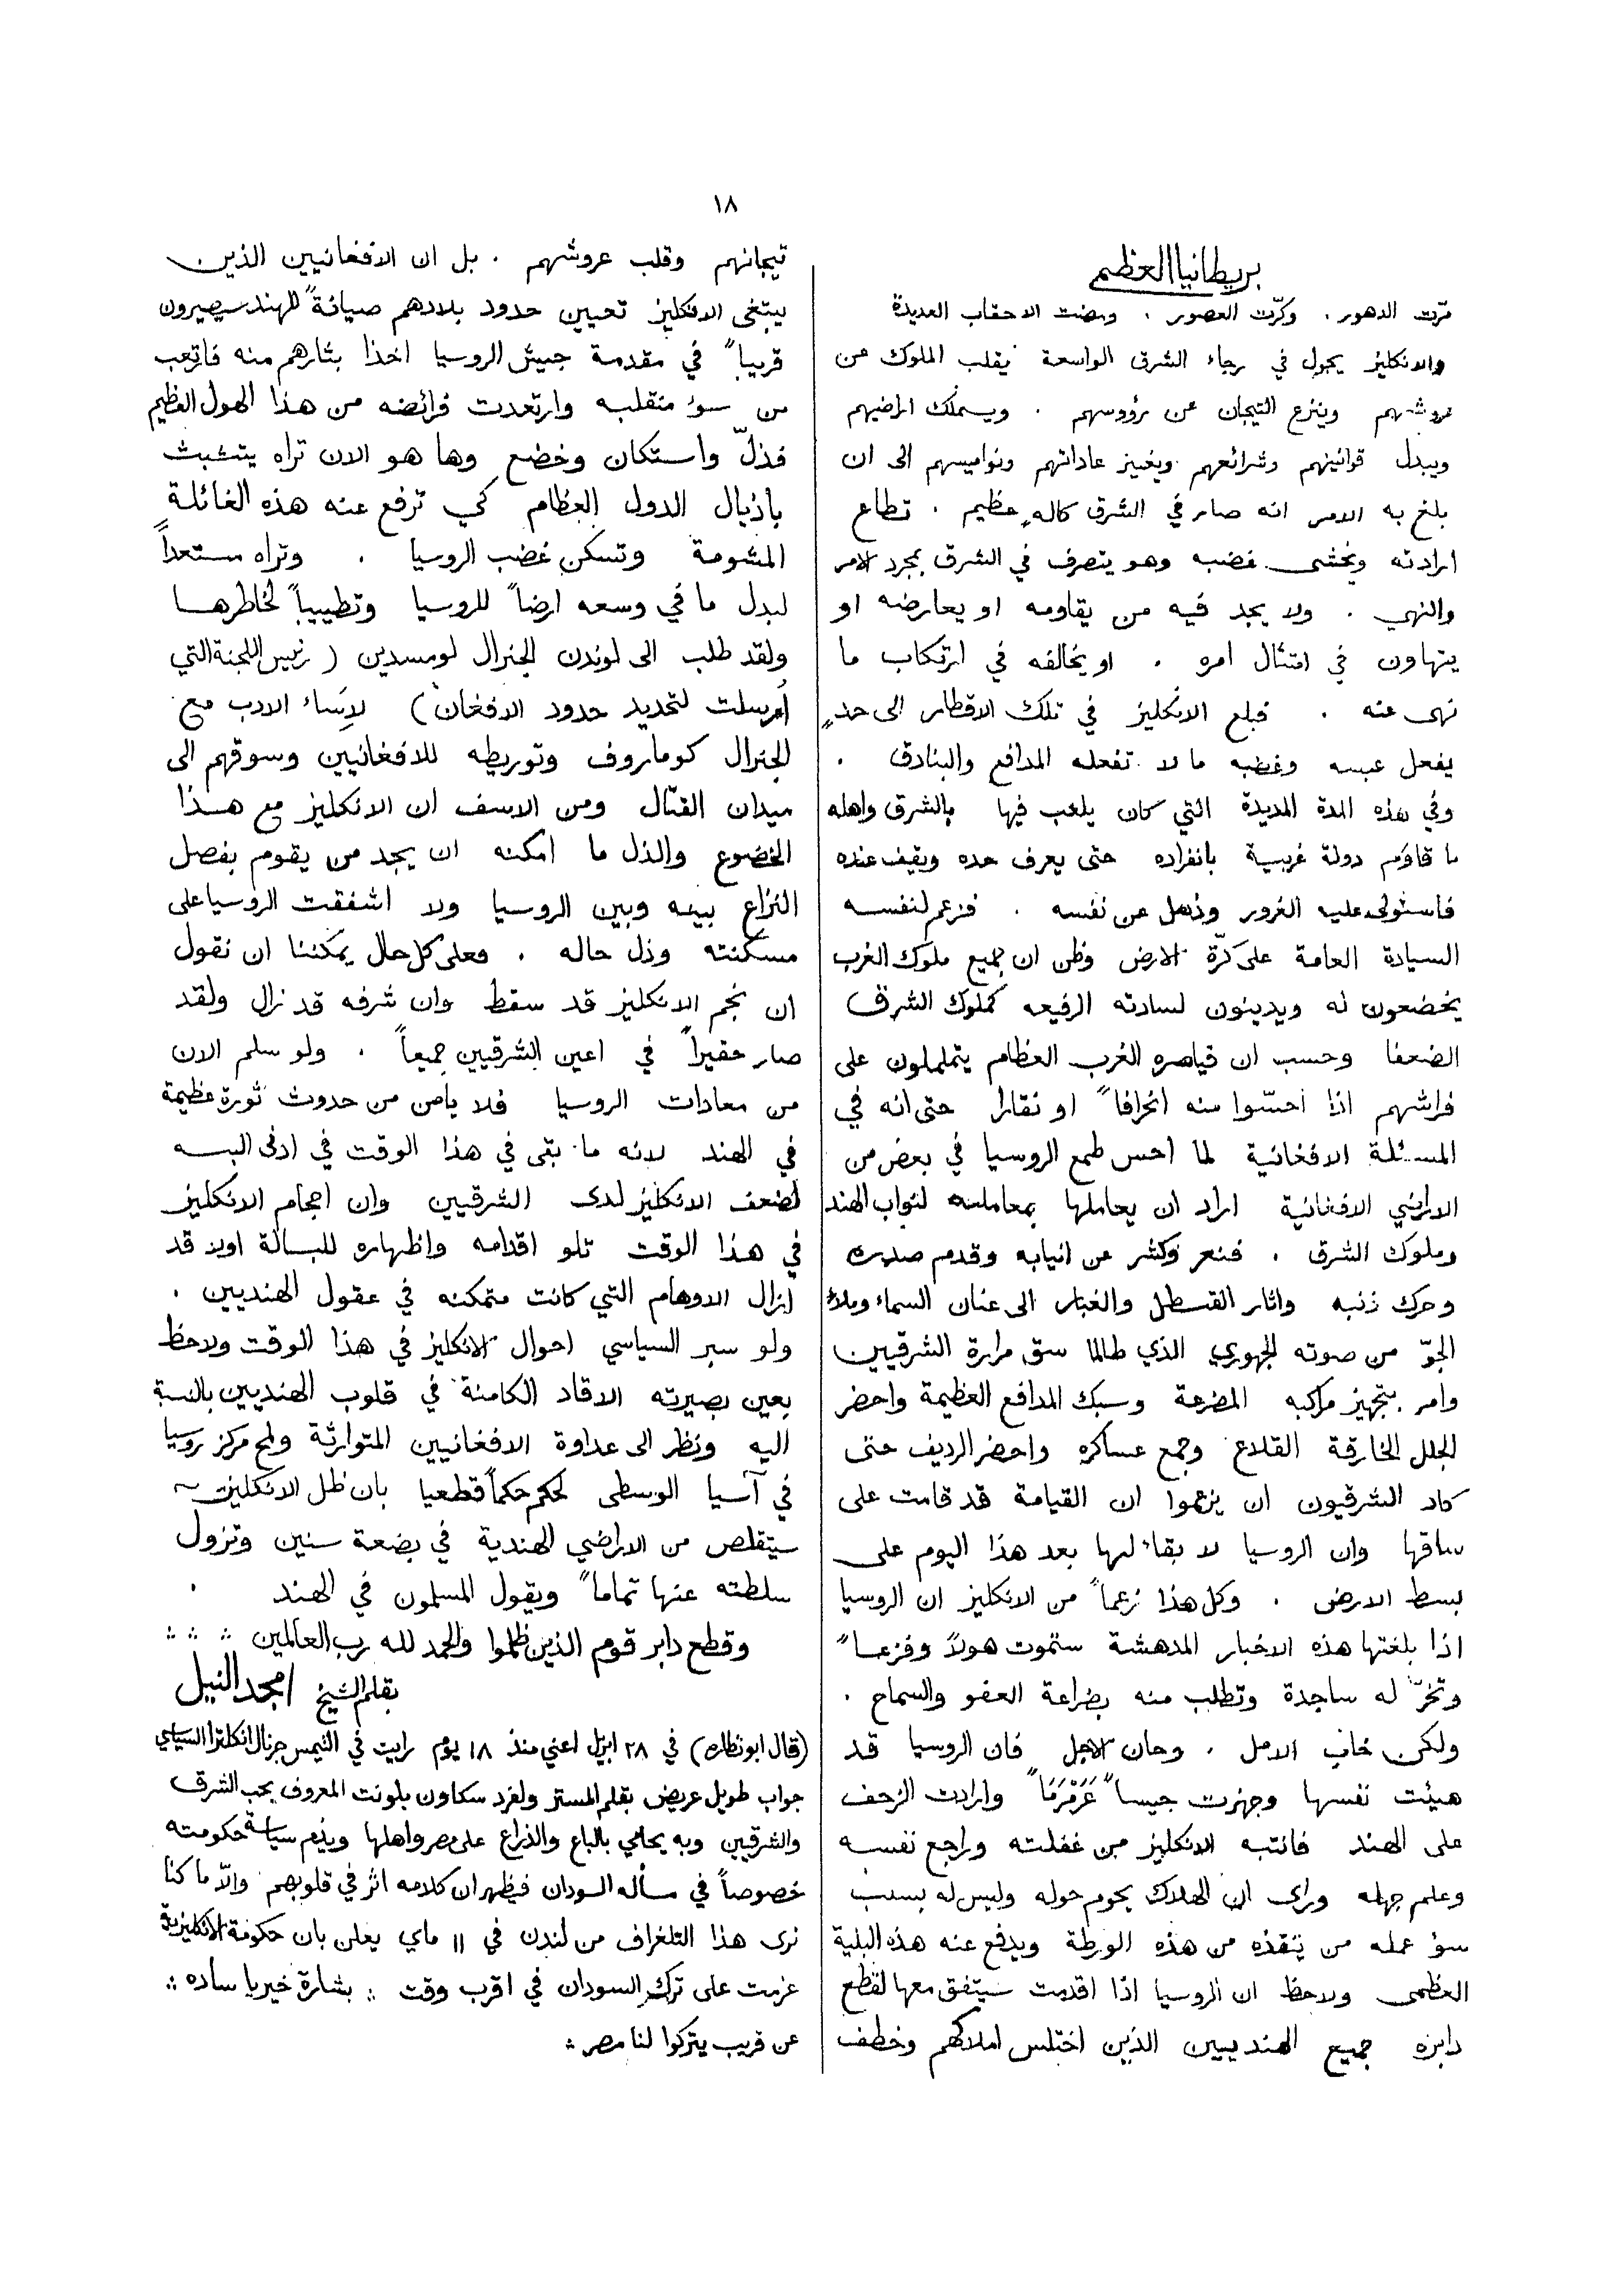 ١٨
بريطانيا العظمى
مرّت الدهور . وكرّت العصور . ومضت الاحقاب العديدة
والانكليز يجول في رجاء الشرق الواسعة يقلب الملوك عن
عروشهم وينزع التيجان عن رؤوسهم . ويستملك اراضيهم
ويبدل قوانينهم وشرائعهم ويغيير عاداتهم ونواميسهم الى ان
بلغ به الامر انه صار في الشرق كاله عظيم . تطاع
ارادته ويخشى غضبه وهو يتصرف في الشرق بمجرد الامر
والنهي . ولا يجد فيه من يقاومه او يعارضه او
يتهاون في امتثال امره . او يخالفه في ارتكاب ما
نهى عنه . فبلغ الانكليز في تلك الاقطار الى حدٍ
يفعل عبسه وغضبه ما لا تفعله المدافع والبنادق .
وفي هذه المدة المديدة التي كان يلعب فيها بالشرق واهله
ما قاوم دولة غربية بانفراده حتى يعرف حده ويقيف عنده
فاستولى عليه الغرور وذهل عن نفسه . فزعم لنفسه
السيادة العامة على كرّة الارض وظن ان جميع ملوك الغرب
يخضعون له ويدينون لسادته الرفيعه كملوك الشرق
الضعفا وحسب ان قياصره الغرب العظام يتململون على
فراشهم اذا احسّوا منه انحرافاً او نقارا حتى انه في
المسئلة الافغانية لما احس طمع الروسيا في بعض من
الاراضي الافغانية اراد ان يعاملها بمعاملته لنواب الهند
وملوك الشرق . فنعر وكشر عن انيابه وقدم صدره
وحرك ذنبه واثار القسطل والغبار الى عنان السماء وملاء
الجوّ من صوته الجهوري الذي طالما سق مرارة الشرقيين
وامر بتجهيز مراكبه المضرعة وسبك المدافع العظيمة واحضر
الجلل الخارقة القلاع وجمع عساكره واحضر الرديف حتى
كاد الشرقيون ان يزعموا ان القيامة قد قامت على
ساقها وان الروسيا لا بقاء لها بعد هذا اليوم على
بسط الارض . وكل هذا زعماً من الانكليز ان الروسيا
اذا بلغتها هذه الاخبار المدهشة ستموت هولاً وفزعاً
وتخرّ له ساجدة وتطلب منه بضراعة العفو والسماح .
ولكن خاب الامل . وحان الاجل فان الروسيا قد
هيئت نفسها وجهزت جيساً عَرَمْرَمَاً وارادت الزحف
على الهند فانتبه الانكليز من غفلته وراجع نفسه
وعلم جهله وراى ان الهلاك يحوم حوله وليس له بسبب
سؤ عمله من ينقذه من هذه الورطة ويدفع عنه هذه البلية
العظمى ولاحظ ان الروسيا اذا اقدمت سيتفق معها لقطع
دابره جميع الهنديين الذين اختلس املاكهم وخطف
تيجانهم وقلب عروشهم . بل ان الافغانيين الذين
يبتغى الانكليز تعيين حدود بلادهم صيانةً للهند سيصيرون
قريباً في مقدمة جيش الروسيا اخذا بثارهم منه فارتعب
من سوء منقلبه وارتعدت فرائضه من هذا الهول العظيم
فذلّ واستكان وخضع وها هو الان تراه يتشبث
باذيال الدول العظام كي ترفع عنه هذه الغائلة
المشومة وتسكن غضب الروسيا . وتراه مستعداً
لبدل ما في وسعه ارضاً للروسيا وتطييباً لخاطرها
ولقد طلب الى لوندن الجنرال لومسدين ( رئيس اللجنة التي
اُرسلت لتحديد حدود الافغان ) لاِساء الادب مع
الجنرال كوماروف وتوريطه للافغانيين وسوقهم الى
ميدان القتال ومن الاسف ان الانكليز مع هذا
الخضوع والذل ما امكنه ان يجد من يقوم بفصل
النزاع بينه وبين الروسيا ولا اشفقت الروسيا على
مسكنته وذل حاله . فعلى كل حال يمكننا ان نقول
ان نجم الانكليز قد سقط وان شرفه قد زال ولقد
صار حقيراً في اعين الشرقيين جميعاً . ولو سلم الان
من معادات الروسيا فلا يامن من حدوث ثورة عظيمة
في الهند لانه ما بقى في هذا الوقت في ادنى البسه
لضعف الانكليز لدى الشرقيين وان احجام الانكليز
في هذا الوقت تلو اقدامه واظهاره للبسالة اولا قد
ازال الاوهام التي كانت متمكنه في عقول الهنديين .
ولو سبر السياسي احوال الانكليز في هذا الوقت ولاحظ
بعين بصيرته الاقاد الكامنة في قلوب الهنديين بالنسبة
اليه ونظر الى عداوة الافغانيين المتوارثة ولمح مركز روسيا
في آسيا الوسطى لحكم حكماً قطعيا بان ظل الانكليز
سيتقلص من الاراضي الهندية في بضعة سنين وتزول
سلطته عنها تماماً ويقول المسلمون في الهند .
وقطع دابر قوم الذين ظلموا والحمد لله رب العالمين
بقلم الشيخ امجد النيل
(قال ابو نظاره) في ٢٨ ابريل اعني منذ ١٨ يوم رايت في التيمس جرنال انكلترا السياسي
جواب طويل عريض بقلم المستر ولفرد سكاون بلونت المعروف بحب الشرق
والشرقيين وبه يحامي بالباع والذراع على مصر واهلها ويذم سياسة حكومته
خصوصاً في مسأله السودان فيظهر ان كلامه اثر في قلوبهم والاّ ما كنا
نرى هذا التلغراف من لندن في ١١ ماي يعلن بان حكومة الانكليزية
عزمت على ترك السودان في اقرب وقت : بشارة خير يا ساده :
عن قريب يتركوا لنا مصر :